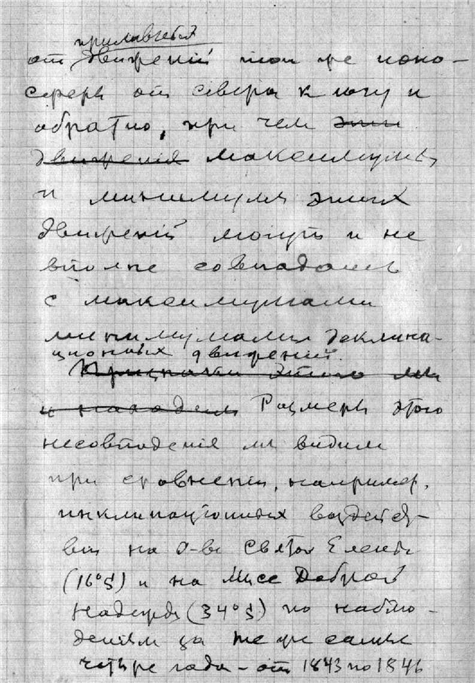 от движений той же ионо-
сферы от севера к югу и
обратно, при чем эти
движения максимумы
и минимумы этих
движений могут и не
вполне совпадать
с максимумами
минимумами деклина-
ционных движений.
Признаки этого мы
и находим Размеры этого
несовпадения мы видим
при сравнении, например,
инклинационных воздейст-
вий на о-ве Святой Елены
(16°S) и на Мысе Доброй
Надежды (34°S) по наблю-
дениям за те же самые
четыре года – от 1843 по 1846